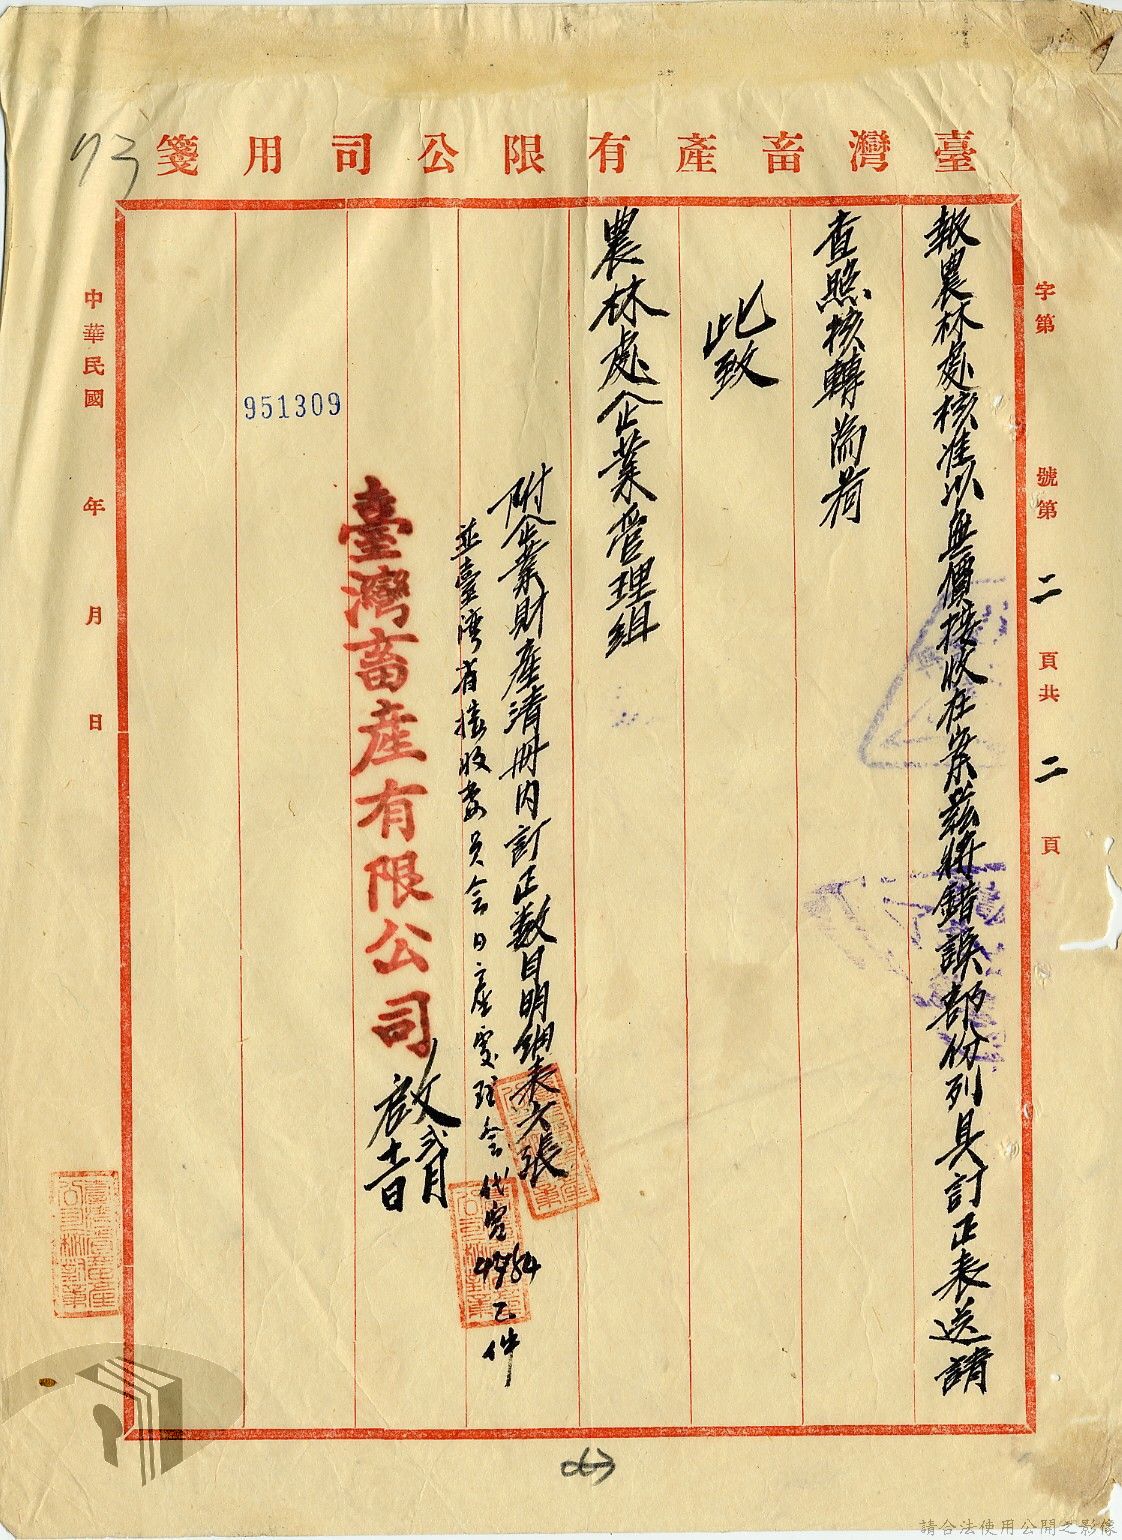 臺灣畜產有限公司用箋
73
字第 號第二頁共二頁
報農林處核准以無價接收在案茲將錯誤部份列具訂正表送請
查照核轉為荷
此致
農林處企業管理組
附企業財產清冊內訂正數目明細表六張
並臺湾省接收委員会日產處理会代電4954乙件
臺灣畜產有限公司啟
弍月十一日
951309
中華民國 年 月 日
請合法使用公開之影像